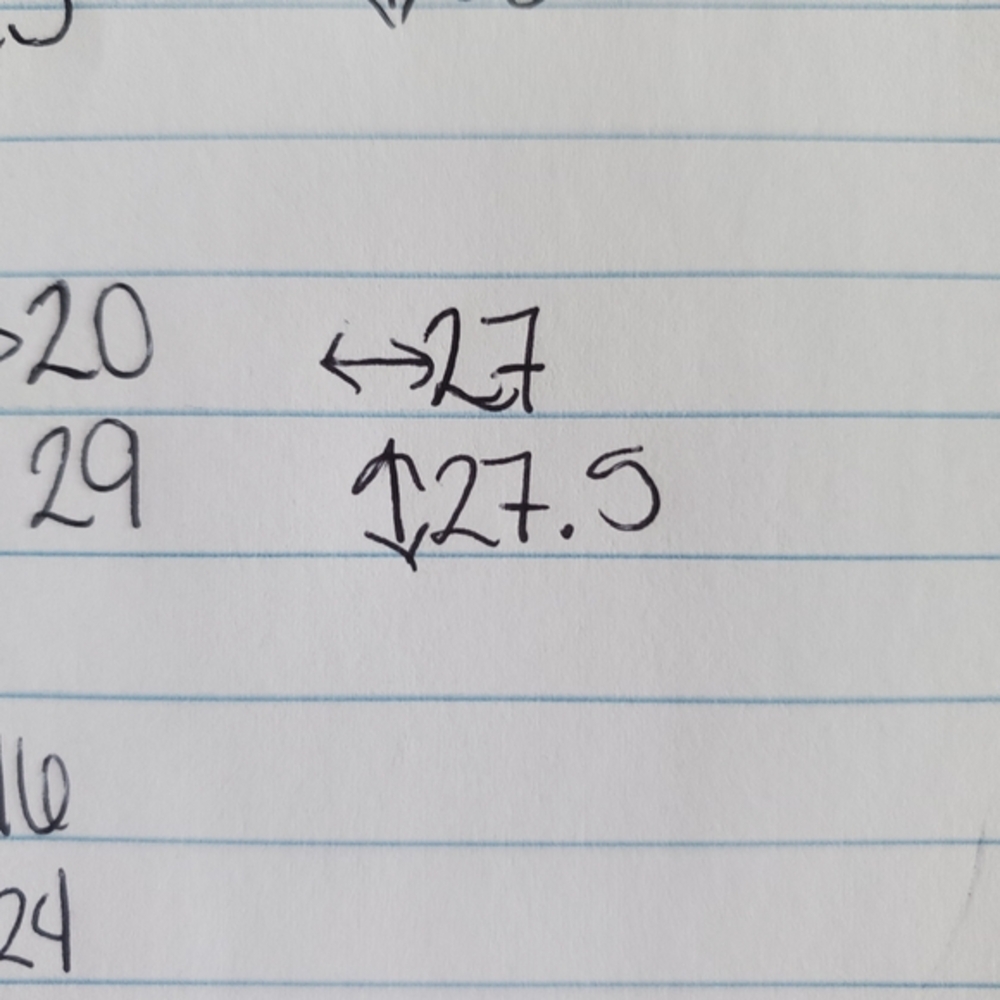 20 ↔27
29 ↕27.5
16
24